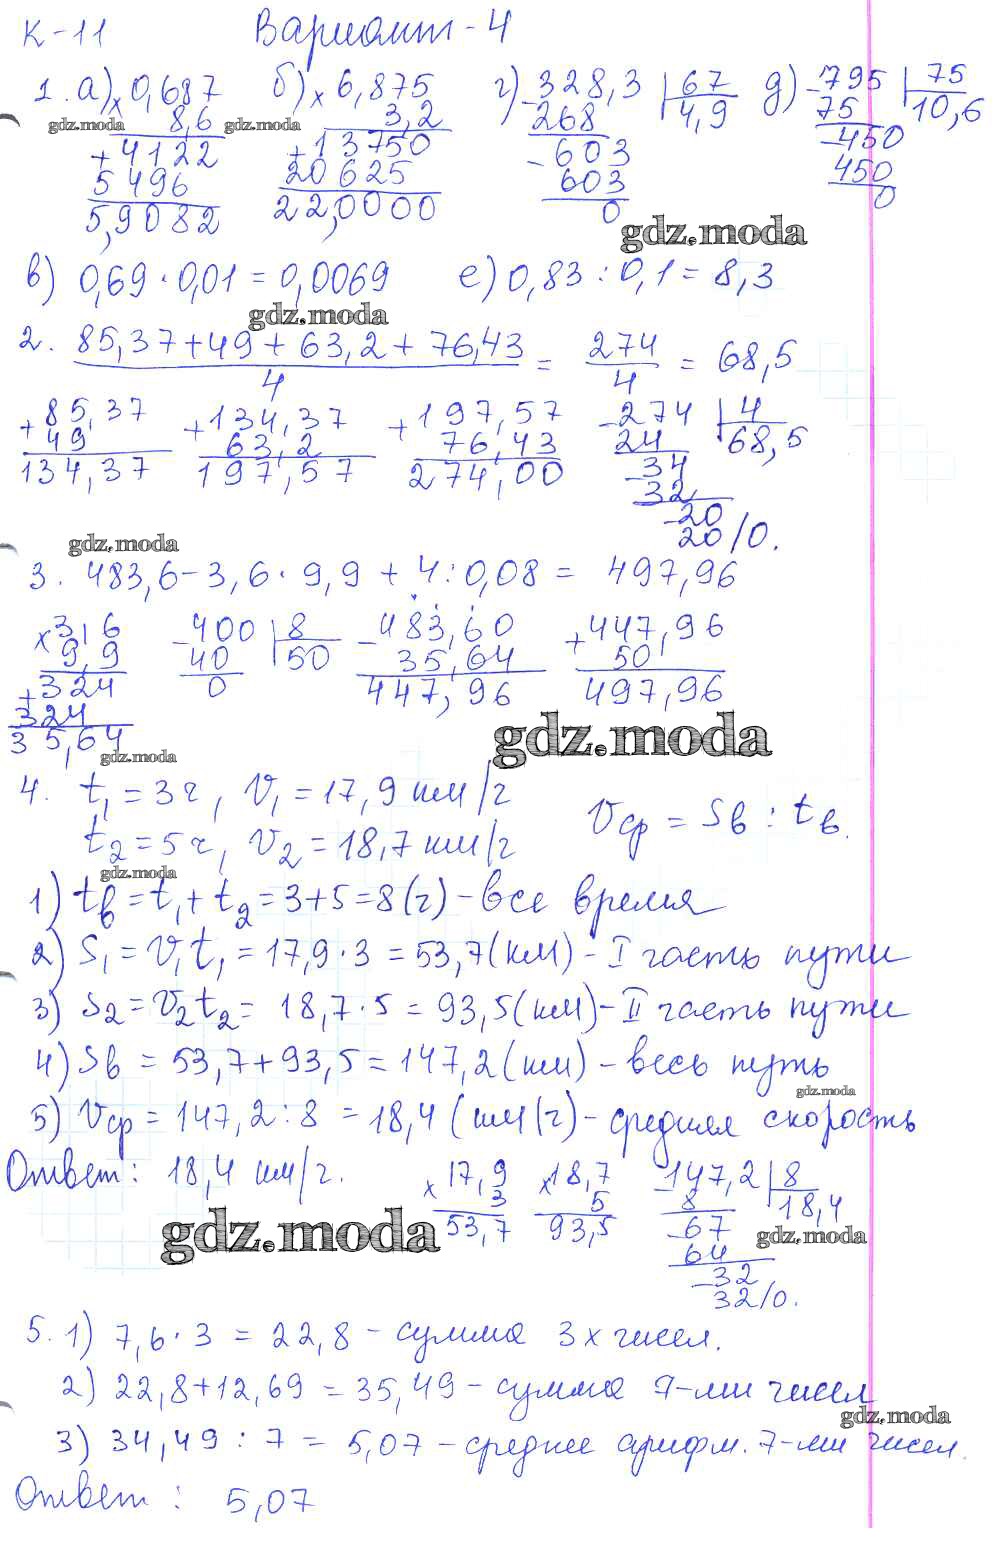 К-11 Вариант-4
1. а) × 0,687 б) × 6,875 г) - 328,3 | 67 д) - 795 | 75
8,6 3,2 268 4,9 75 10,6
+ 4122 + 13750 - 603 - 450
5496 20625 603 450
5,9082 22,0000 0 0
в) 0,69 · 0,01 = 0,0069 е) 0,83 : 0,1 = 8,3
2. 85,37 + 49 + 63,2 + 76,43 / 4 = 274 / 4 = 68,5
+ 85,37 + 134,37 + 197,57 - 274 | 4
49 63,2 76,43 24 68,5
134,37 197,57 274,00 - 34
32
- 20
20/0.
3. 483,6 - 3,6 · 9,9 + 4 : 0,08 = 497,96
× 3,6 - 400 | 8 - 483,60 + 447,96
9,9 40 50 35,64 50,
+ 324 0 447,96 497,96
324
35,64
4. t₁ = 3 ч, v₁ = 17,9 км/ч
t₂ = 5 ч, v₂ = 18,7 км/ч vср = sв : tв.
1) tв = t₁ + t₂ = 3 + 5 = 8 (ч) - все время
2) s₁ = v₁t₁ = 17,9 · 3 = 53,7 (км) - I часть пути
3) s₂ = v₂t₂ = 18,7 · 5 = 93,5 (км) - II часть пути
4) sв = 53,7 + 93,5 = 147,2 (км) - весь путь
5) vср = 147,2 : 8 = 18,4 (км/ч) - средняя скорость
Ответ: 18,4 км/ч. × 17,9 × 18,7 - 147,2 | 8
3 5 8 18,4
53,7 93,5 - 67
64
- 32
32/0.
5. 1) 7,6 · 3 = 22,8 - сумма 3х чисел.
2) 22,8 + 12,69 = 35,49 - сумма 7-ми чисел
3) 34,49 : 7 = 5,07 - среднее арифм. 7-ми чисел.
Ответ: 5,07
gdz.moda
gdz.moda
gdz.moda
gdz.moda
gdz.moda
gdz.moda
gdz.moda
gdz.moda
gdz.moda
gdz.moda
gdz.moda
gdz.moda